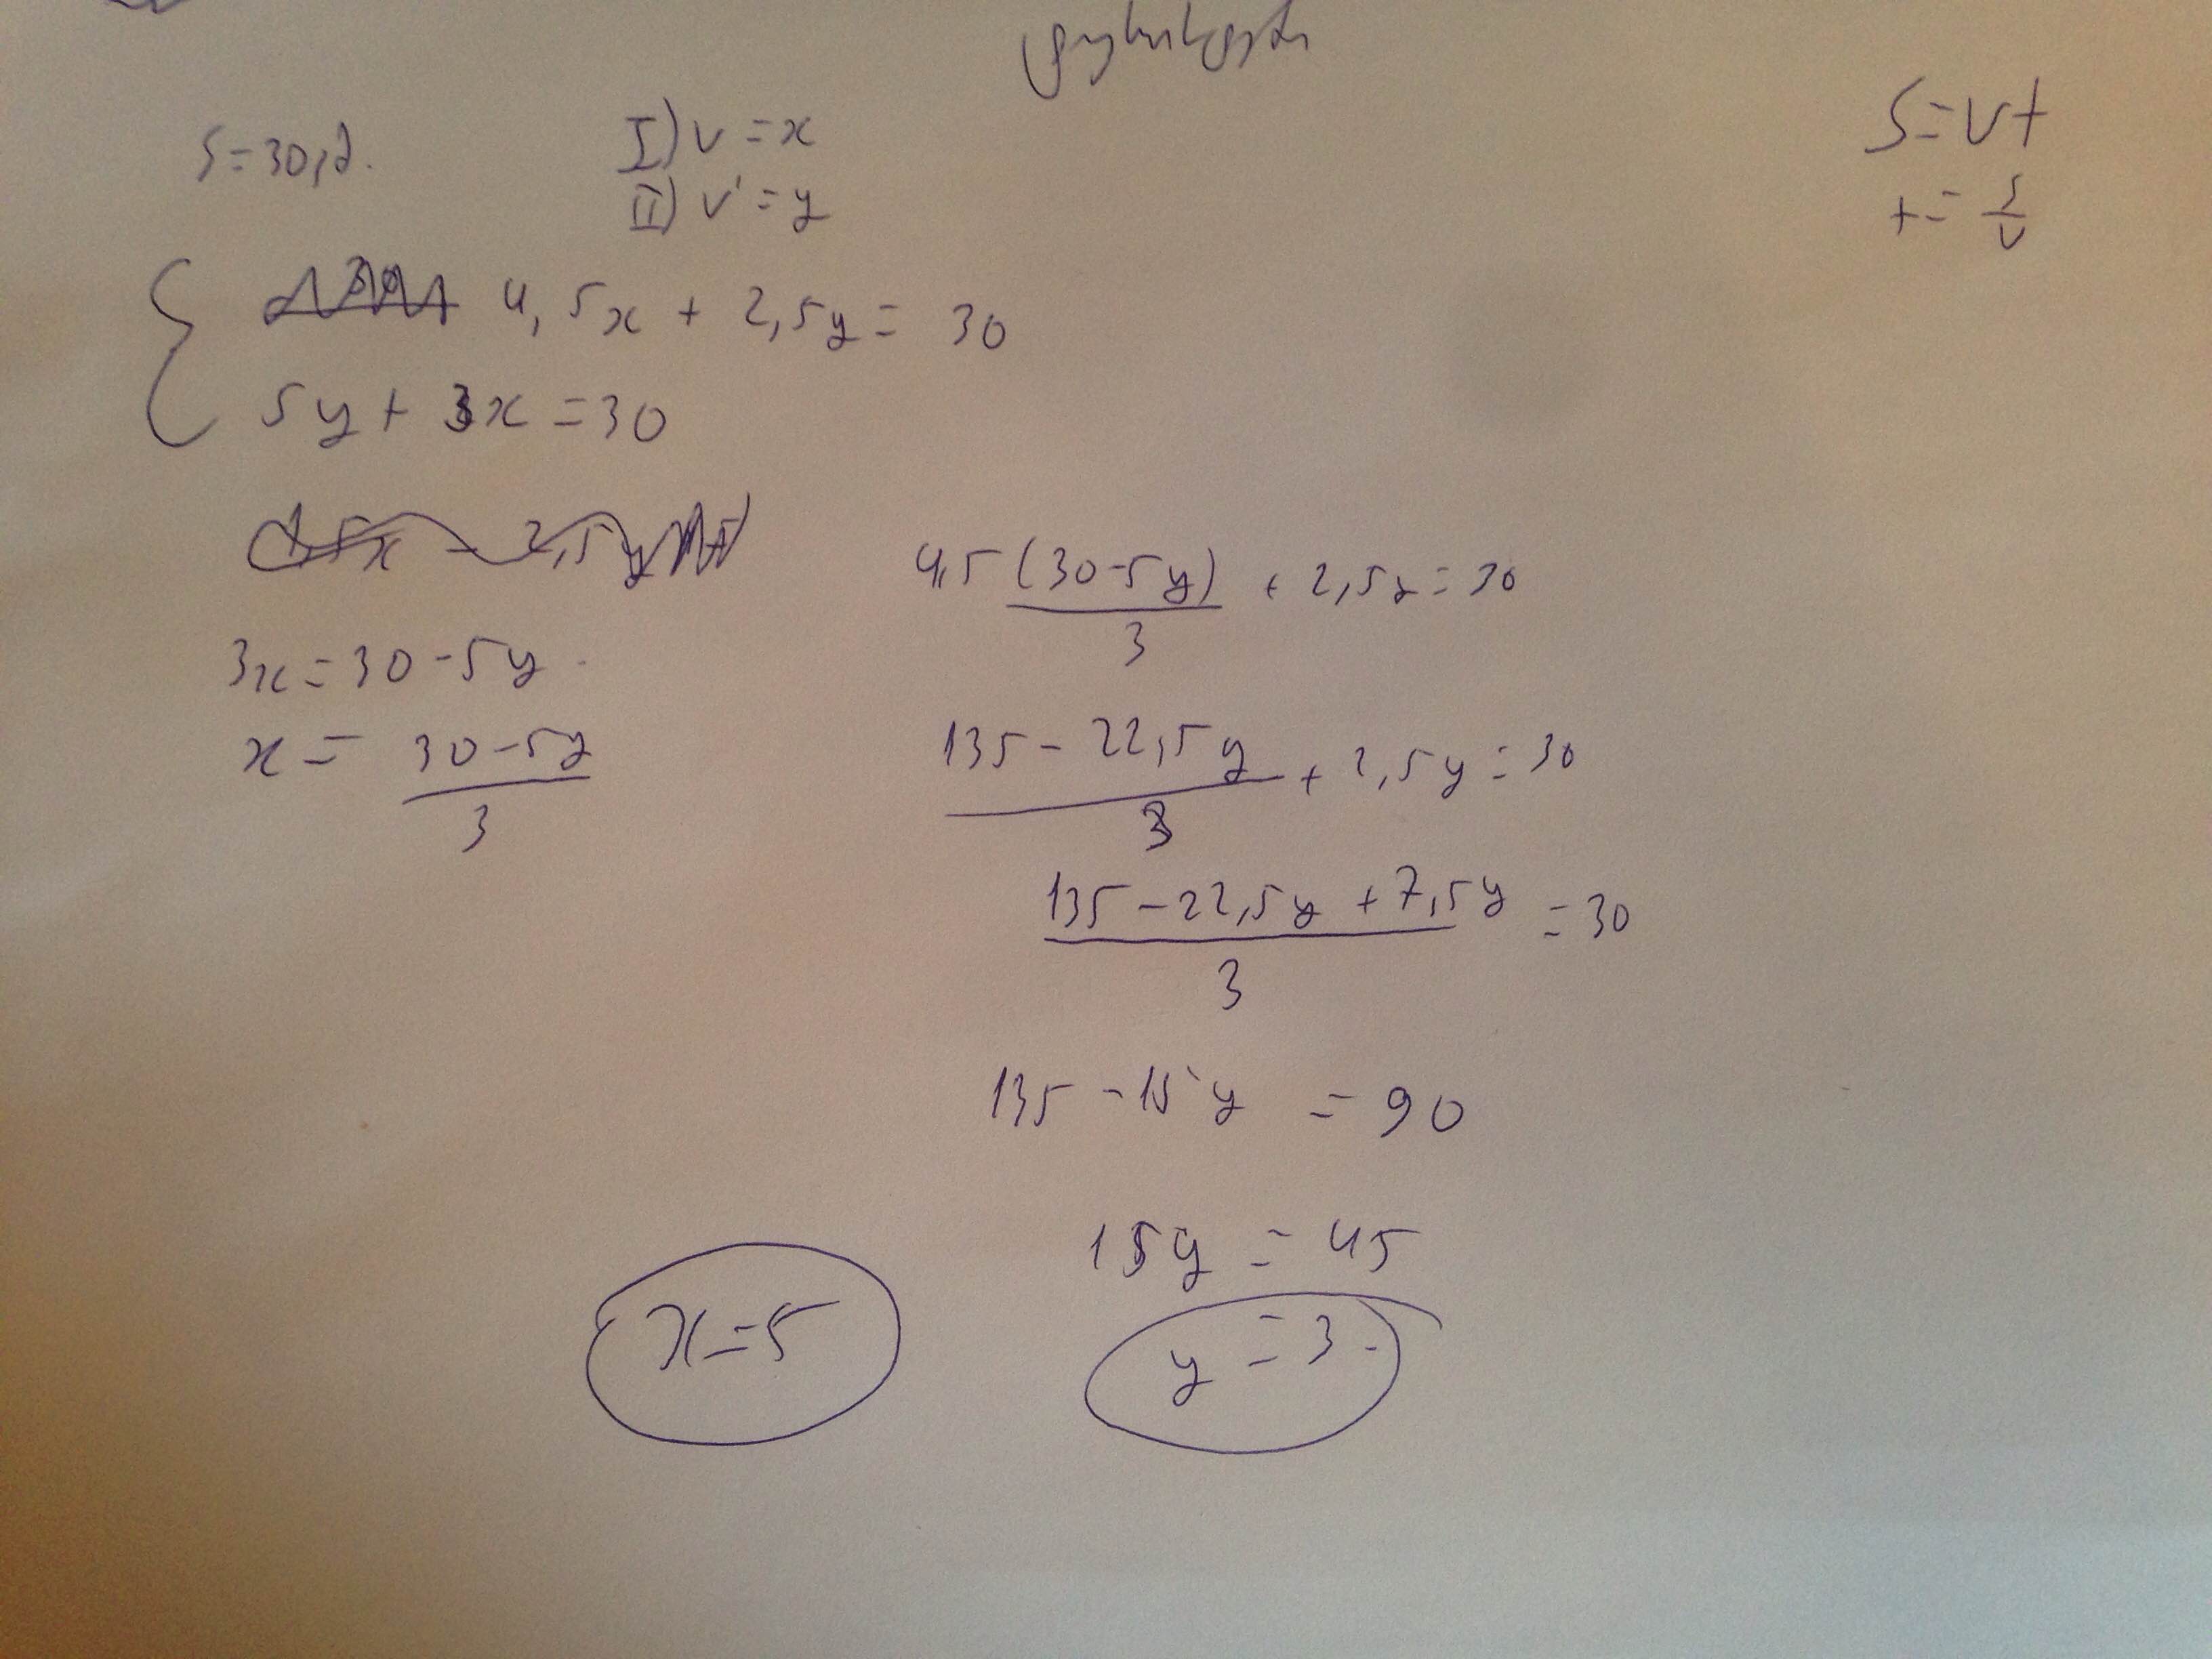 S=30კმ.
I) v = x
II) v' = y
S=vt
t= S/v
{ 4,5x + 2,5y = 30
5y + 3x = 30
3x = 30 - 5y
x = (30 - 5y)/3
4,5(30-5y)/3 + 2,5y = 30
(135 - 22,5y)/3 + 2,5y = 30
(135 - 22,5y + 7,5y)/3 = 30
135 - 15y = 90
15y = 45
x=5
y = 3.